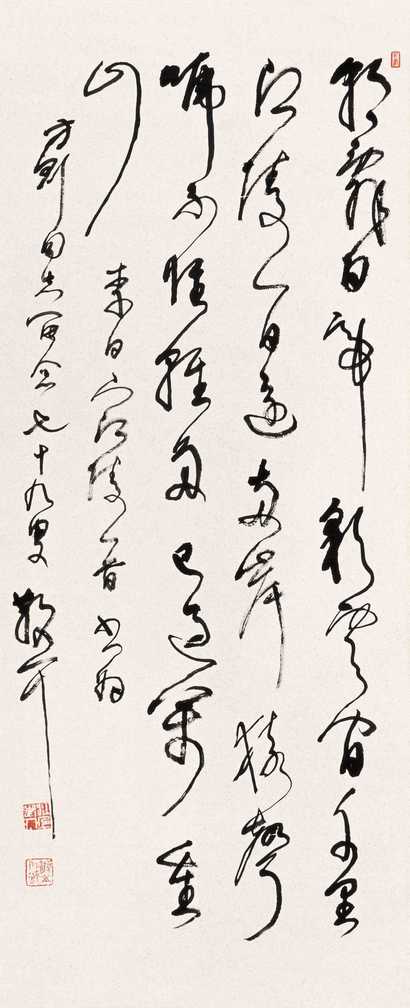 朝辭白帝彩雲間千里
江陵一日還兩岸猿聲
啼不住輕舟已過萬重
山
李白下江陵一首書為
方同志留念七十九叟散耳